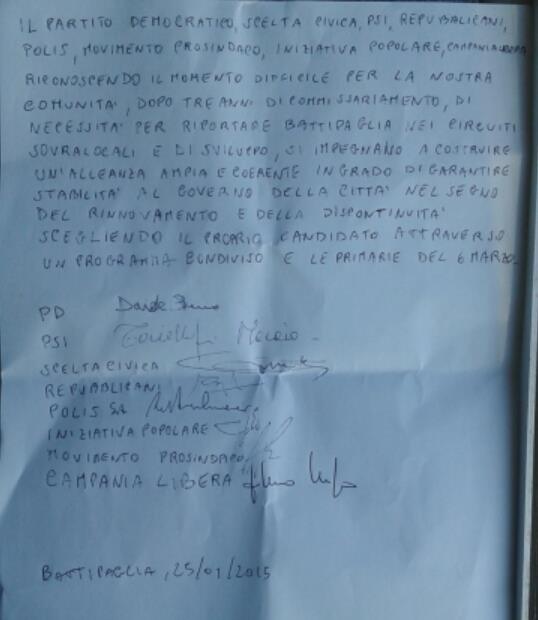 IL PARTITO DEMOCRATICO, SCELTA CIVICA, PSI, REPUBBLICANI,
POLIS, MOVIMENTO PROSINDACO, INIZIATIVA POPOLARE, CAMPANIA LIBERA
RICONOSCENDO IL MOMENTO DIFFICILE PER LA NOSTRA
COMUNITA', DOPO TRE ANNI DI COMMISSARIAMENTO, DI
NECESSITA' PER RIPORTARE BATTIPAGLIA NEI CIRCUITI
SOVRALOCALI E DI SVILUPPO, SI IMPEGNANO A COSTRUIRE
UN'ALLEANZA AMPIA E COERENTE IN GRADO DI GARANTIRE
STABILITA' AL GOVERNO DELLA CITTA' NEL SEGNO
DEL RINNOVAMENTO E DELLA DISCONTINUITA'
SCEGLIENDO IL PROPRIO CANDIDATO ATTRAVERSO
UN PROGRAMMA CONDIVISO E LE PRIMARIE DEL 6 MARZO.
PD
PSI
SCELTA CIVICA
REPUBBLICANI
POLIS SA
INIZIATIVA POPOLARE
MOVIMENTO PROSINDACO
CAMPANIA LIBERA
BATTIPAGLIA, 25/01/2015